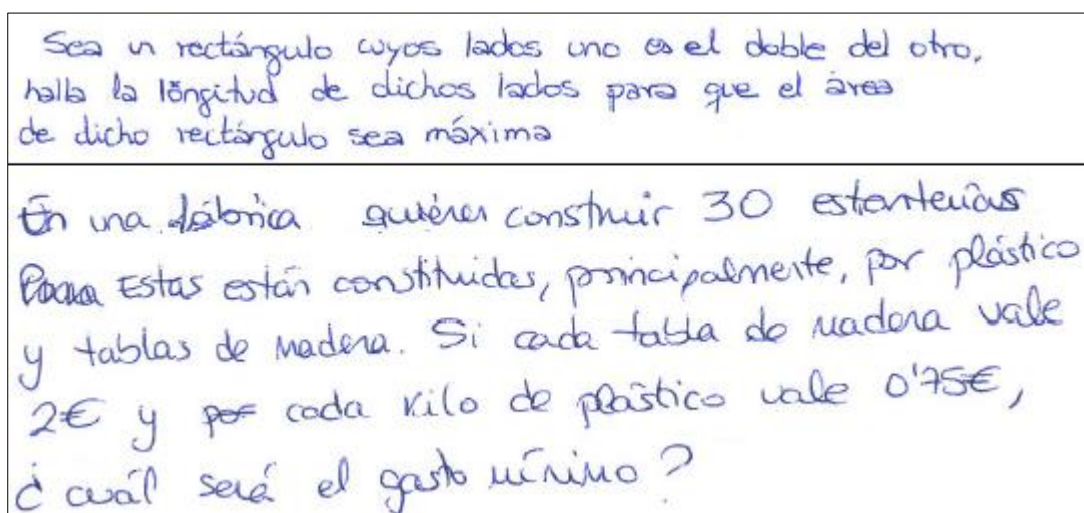 Sea un rectángulo cuyos lados uno es el doble del otro,
halla la longitud de dichos lados para que el área
de dicho rectángulo sea máxima
En una fábrica quieren construir 30 estanterías
Estas están constituidas, principalmente, por plástico
y tablas de madera. Si cada tabla de madera vale
2€ y cada kilo de plástico vale 0'75€,
¿cuál será el gasto mínimo?